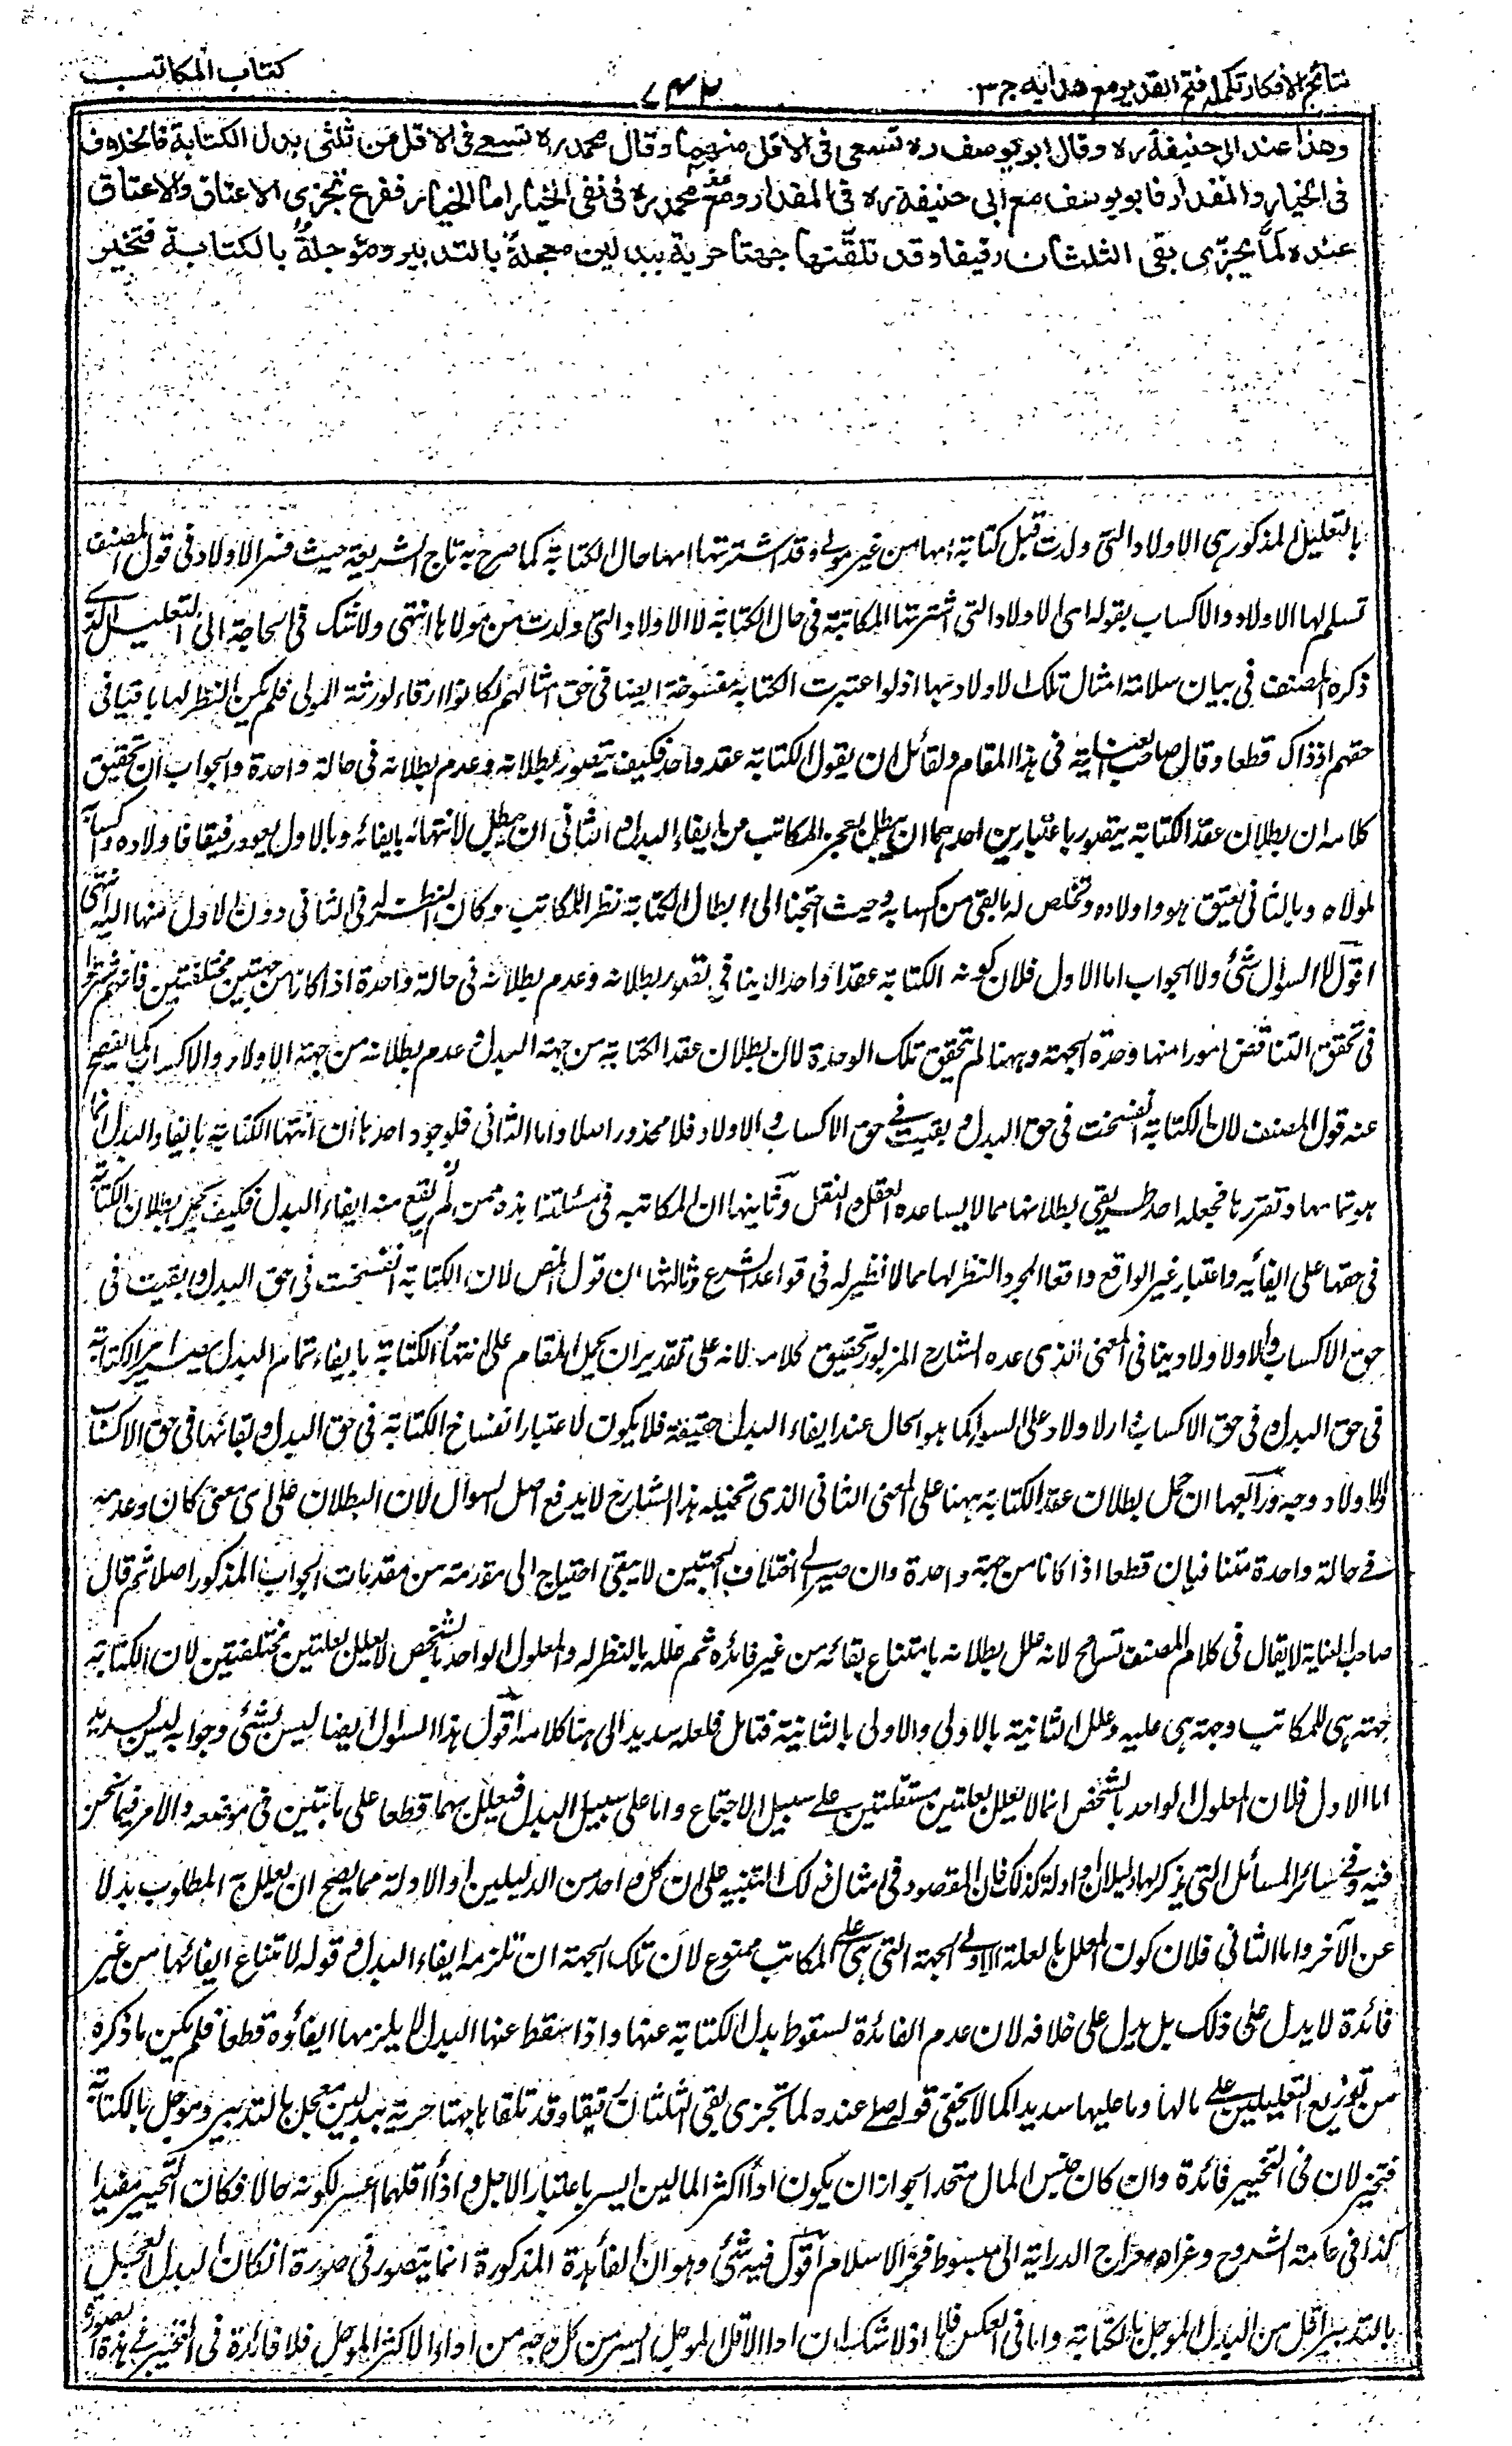 نتائج الافكار تكملہ فتح القدير مع هدايه ج ٣
٧٤٢
كتاب المكاتب
وهذا عند ابى حنيفة ره وقال ابو يوسف ره تسعى فى الاقل منهما وقال محمد ره تسعے فى الاقل من ثلثى بدل الكتابة فالخلاف
فى الخيار والمقدار فابو يوسف مع ابى حنيفة ره فى المقدار ومع محمد ره فى نفى الخيار اما الخيار ففرع تجزى الاعتاق والاعتاق
عنده لما يجزى بقى الثلثان رقيقا وقد تلقتها جهتا حرية ببدلين معجلة بالتدبير ومؤجلة بالكتابة فتخير
بالتعليل المذكور ہى الاولاد التى ولدت قبل كتابة امها من غير مولے وقد اشترتها امها حال الكتابة كما صرح به تاج الشريعة حيث فسر الاولاد فى قول المصنف
تسلم لها الاولاد والاكساب بقوله اى الاولاد التى اشترتها المكاتبة فى حال الكتابة لا الاولاد التى ولدت من مولاها انتهى ولا شك فى الحاجة الى التعليل الذے
ذكره المصنف فى بيان سلامة امثال تلك الاولاد لها اذ لو اعتبرت الكتابة مفسوخة ايضا فى حق امثالهم لكانوا ارقاء لورثة المولى فلم يكن النظر لها باقيا فى
حقهم اذ ذاك قطعا وقال صاحب العناية فى هذا المقام ولقائل ان يقول الكتابة عقد واحد فكيف يتصور بطلانه وعدم بطلانه فى حالة واحدة والجواب ان تحقيق
كلامه ان بطلان عقد الكتابة يتصور باعتبارين احدهما ان يبطل بعجز المكاتب من ايفاء البدل والثانى ان يبطل لانتهائه بايفائه وبالاول يعود رقيقا فاولاده واكسابه
لمولاه وبالثانى يعتق هو واولاده وتخلص له ما بقى من كسبه وحيث احتجنا الى ابطال الكتابة نظرا للمكاتب وكان النظر له فى الثانى دون الاول منها اليه انتهى
اقول لا السؤال شئ ولا الجواب اما الاول فلان كونه الكتابة عقدا واحدا لا ينافى تصور بطلانه وعدم بطلانه فى حالة واحدة اذا كانا من جهتين مختلفتين فانهم شرطوا
فى تحقق التناقض امورا منها وحدة الجهة وههنا لم تحقق تلك الوحدة لان بطلان عقد الكتابة من جهة البدل وعدم بطلانه من جهة الاولاد والاكساب كما يفصح
عنه قول المصنف لان الكتابة انفسخت فى حق البدل وبقيت فے حق الاكساب والاولاد فلا محذور اصلا واما الثانى فلوجوه احدها ان انتهاء الكتابة بايفاء البدل انما
هو تمامها وتقررها فجعله احد طريقى بطلانها مما لا يساعده العقل والنقل وثانيها ان المكاتبه فى مسئلتنا هذه ممن لم يقع منه ايفاء البدل فكيف بطلان الكتابة
فى حقها على ايفائه واعتبار غير الواقع واقعا لمجرد النظر لها مما لا نظير له فى قواعد الشرع وثالثها ان قول المص لان الكتابة انفسخت فى حق البدل وبقيت فى
حق الاكساب والاولاد ينافى المعنى الذى عده الشارح المزبور تحقيق كلامه لانه على تقدير ان يحمل المقام على انتهاء الكتابة بايفاء تمام البدل الكتابة
فى حق البدل وفى حق الاكساب والاولاد على السواء كما هو الحال عند ايفاء البدل حقيقة فلا يكون لاعتبار انفساخ الكتابة فى حق البدل وبقائها فى حق الاكساب
والاولاد وجه ورابعها ان حمل بطلان عقد الكتابة ههنا على المعنى الثانى الذى تخيله هذا الشارح لا يدفع اصل السؤال لان البطلان على اى معنى كان وعدمه
فے حالة واحدة متنافيان قطعا اذا كانا من جهة واحدة وان صير الے اختلاف الجهتين لا يبقى احتياج الى مقدمة من مقدمات الجواب المذكور اصلا ثم قال
صاحب العناية لا يقال فى كلام المصنف تسامح لانه علل بطلانه بامتناع بقائه من غير فائده ثم علله بالنظر له والمعلول الواحد بالشخص لا يعلل بعلتين مختلفتين لان الكتابة
جهة هى للمكاتب وجهة هى عليه وعلل الثانية بالاولى والاولى بالثانية فتامل فلعله سديد الى هنا كلامه اقول هذا السوال ايضا ليس بشئ وجوابه ليس بسديد
اما الاول فلان المعلول الواحد بالشخص انما لا يعلل بعلتين مستقلتين علے سبيل الاجتماع واما على سبيل البدل فيعلل بهما قطعا على ما تبين فى موضعه والامر فيما نحن
فيه وفے سائر المسائل التى يذكر لها دليلان او ادلة كذلك فان المقصود فى امثال ذلك التنبيه على ان كل واحد من الدليلين او الادلة مما يصح ان يعلل به المطلوب بدلا
عن الآخر واما الثانى فلان كون المعلل بالعلة الاولے الجهة التى هى على المكاتب ممنوع لان تلك الجهة ان تلزمه ايفاء البدل وقوله لامتناع ابقائها من غير
فائدة لا يدل على ذلك بل يدل على خلافه لان عدم الفائدة لسقوط بدل الكتابة عنها واذا سقط عنها البدل لا يلزمها ايفاؤه قطعا فلم يكن ما ذكره
من توزيع التعليلين علے مالها وما عليها سديدا كما لا يخفى قوله عنده لما تجزى بقى الثلثان رقيقا وقد تلقاها جهتا حرية ببدلين معجل بالتدبير ومؤجل بالكتابة
فتخير لان فى التخيير فائدة وان كان جنس المال متحدا لجواز ان يكون اداء اكثر المالين ايسر باعتبار الاجل واداء اقلهما اعسر لكونه حالا فكان التخيير مفيدا
كذا فى عامة الشروح وعزاه معراج الدراية الى مبسوط فخر الاسلام اقول فيه شئ وهو ان الفائدة المذكورة انما يتصور فى صورة ان كان البدل المعجل
بالتدبير اقل من البدل المؤجل بالكتابة واما فى العكس فلا اذ لا شك ان اداء الاقل المؤجل ايسر من كل وجه من اداء الاكثر فلا فائدة فى التخيير فے هذه الصورة